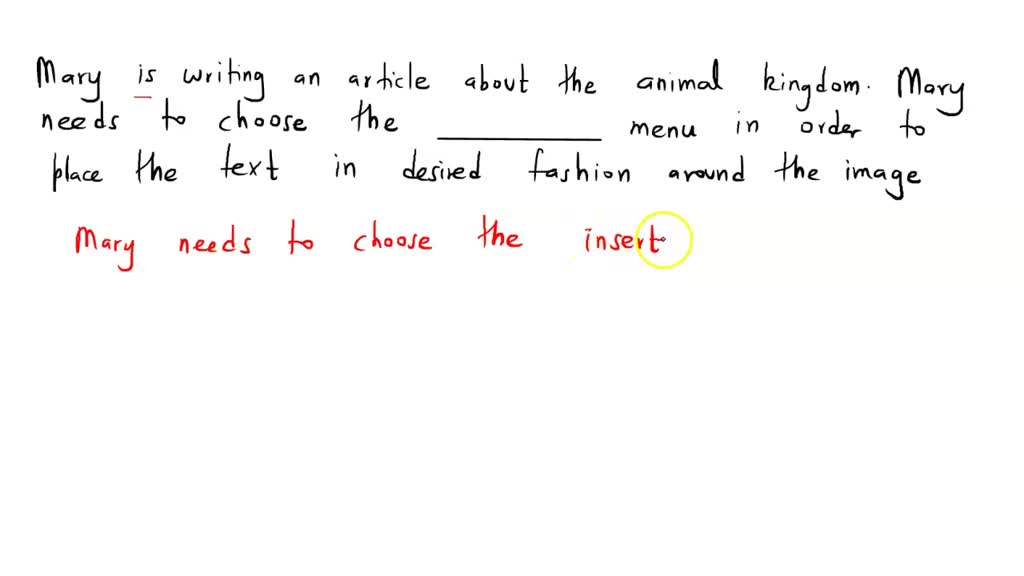 Mary is writing an article about the animal kingdom. Mary
needs to choose the __________ menu in order to
place the text in desired fashion around the image
Mary needs to choose the insert